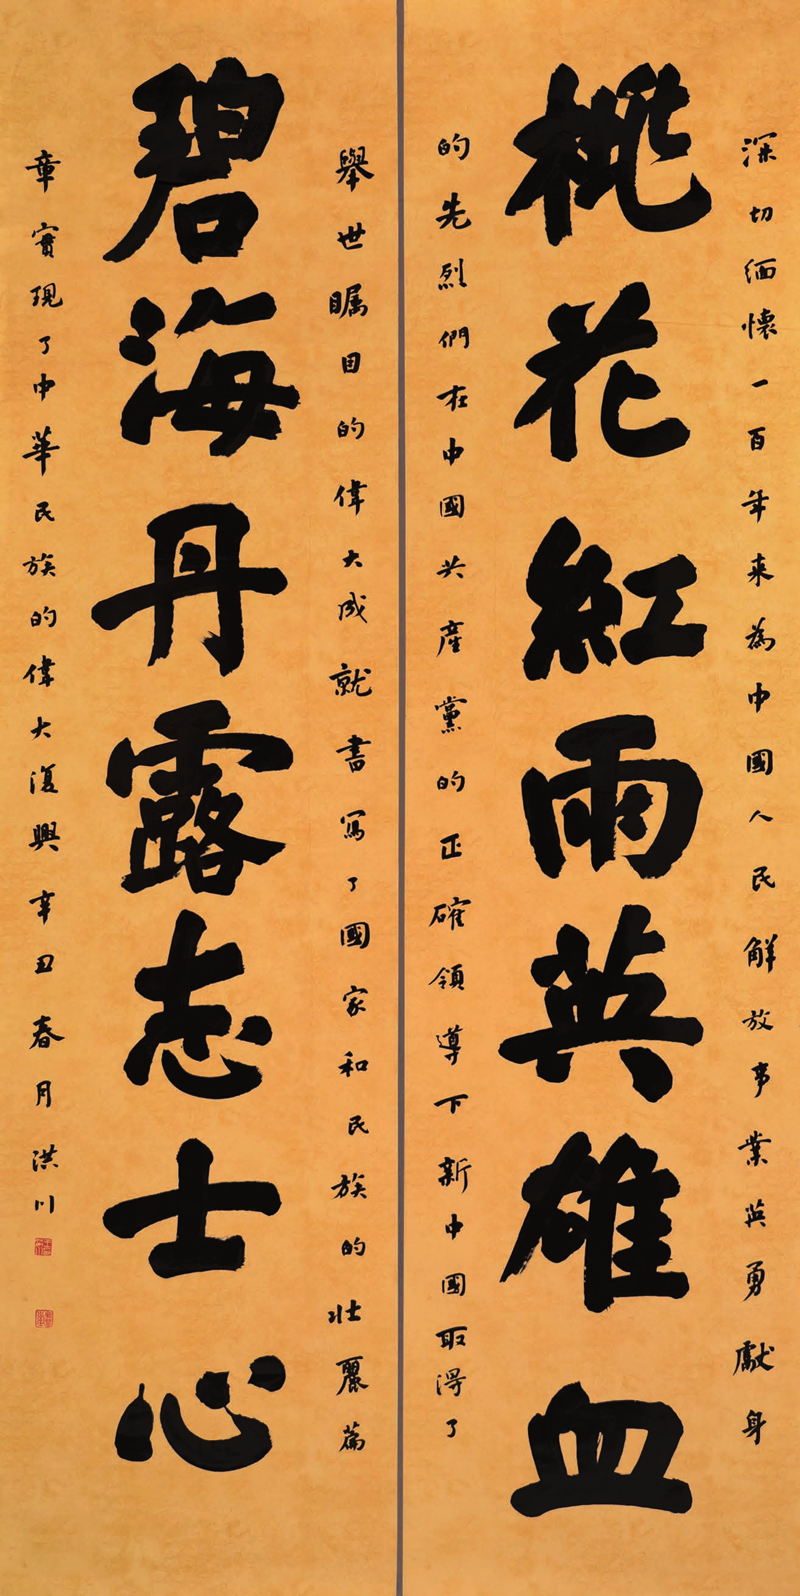 深切缅懷一百年来為中國人民解放事業英勇獻身
桃花紅雨英雄血
的先烈們在中國共產黨的正確領導下新中國取得了
舉世矚目的偉大成就書寫了國家和民族的壯麗篇
碧海丹露志士心
章實現了中華民族的偉大復興辛丑春月洪川